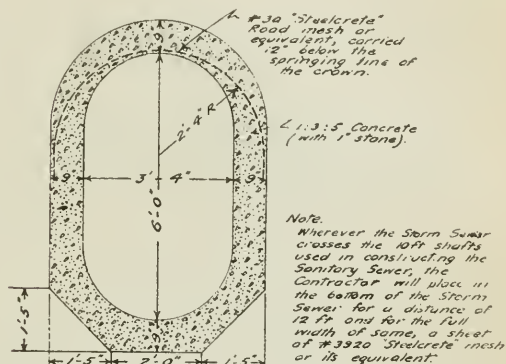 #30 "Steelcrete"
Road mesh or
equivalent, carried
12" below the
springing line of
the crown.
9"
2'-4" R
1:3:5 Concrete
(with 1" stone).
9" 3'-4" 9"
6'-0"
Note.
Wherever the Storm Sewer
crosses the 10ft shafts
used in constructing the
Sanitary Sewer, the
Contractor will place in
the bottom of the Storm
Sewer for a distance of
12 ft and for the full
width of same, a sheet
of #3920 "Steelcrete" mesh
or its equivalent.
1'-5"
9"
1'-5" 2'-0" 1'-5"